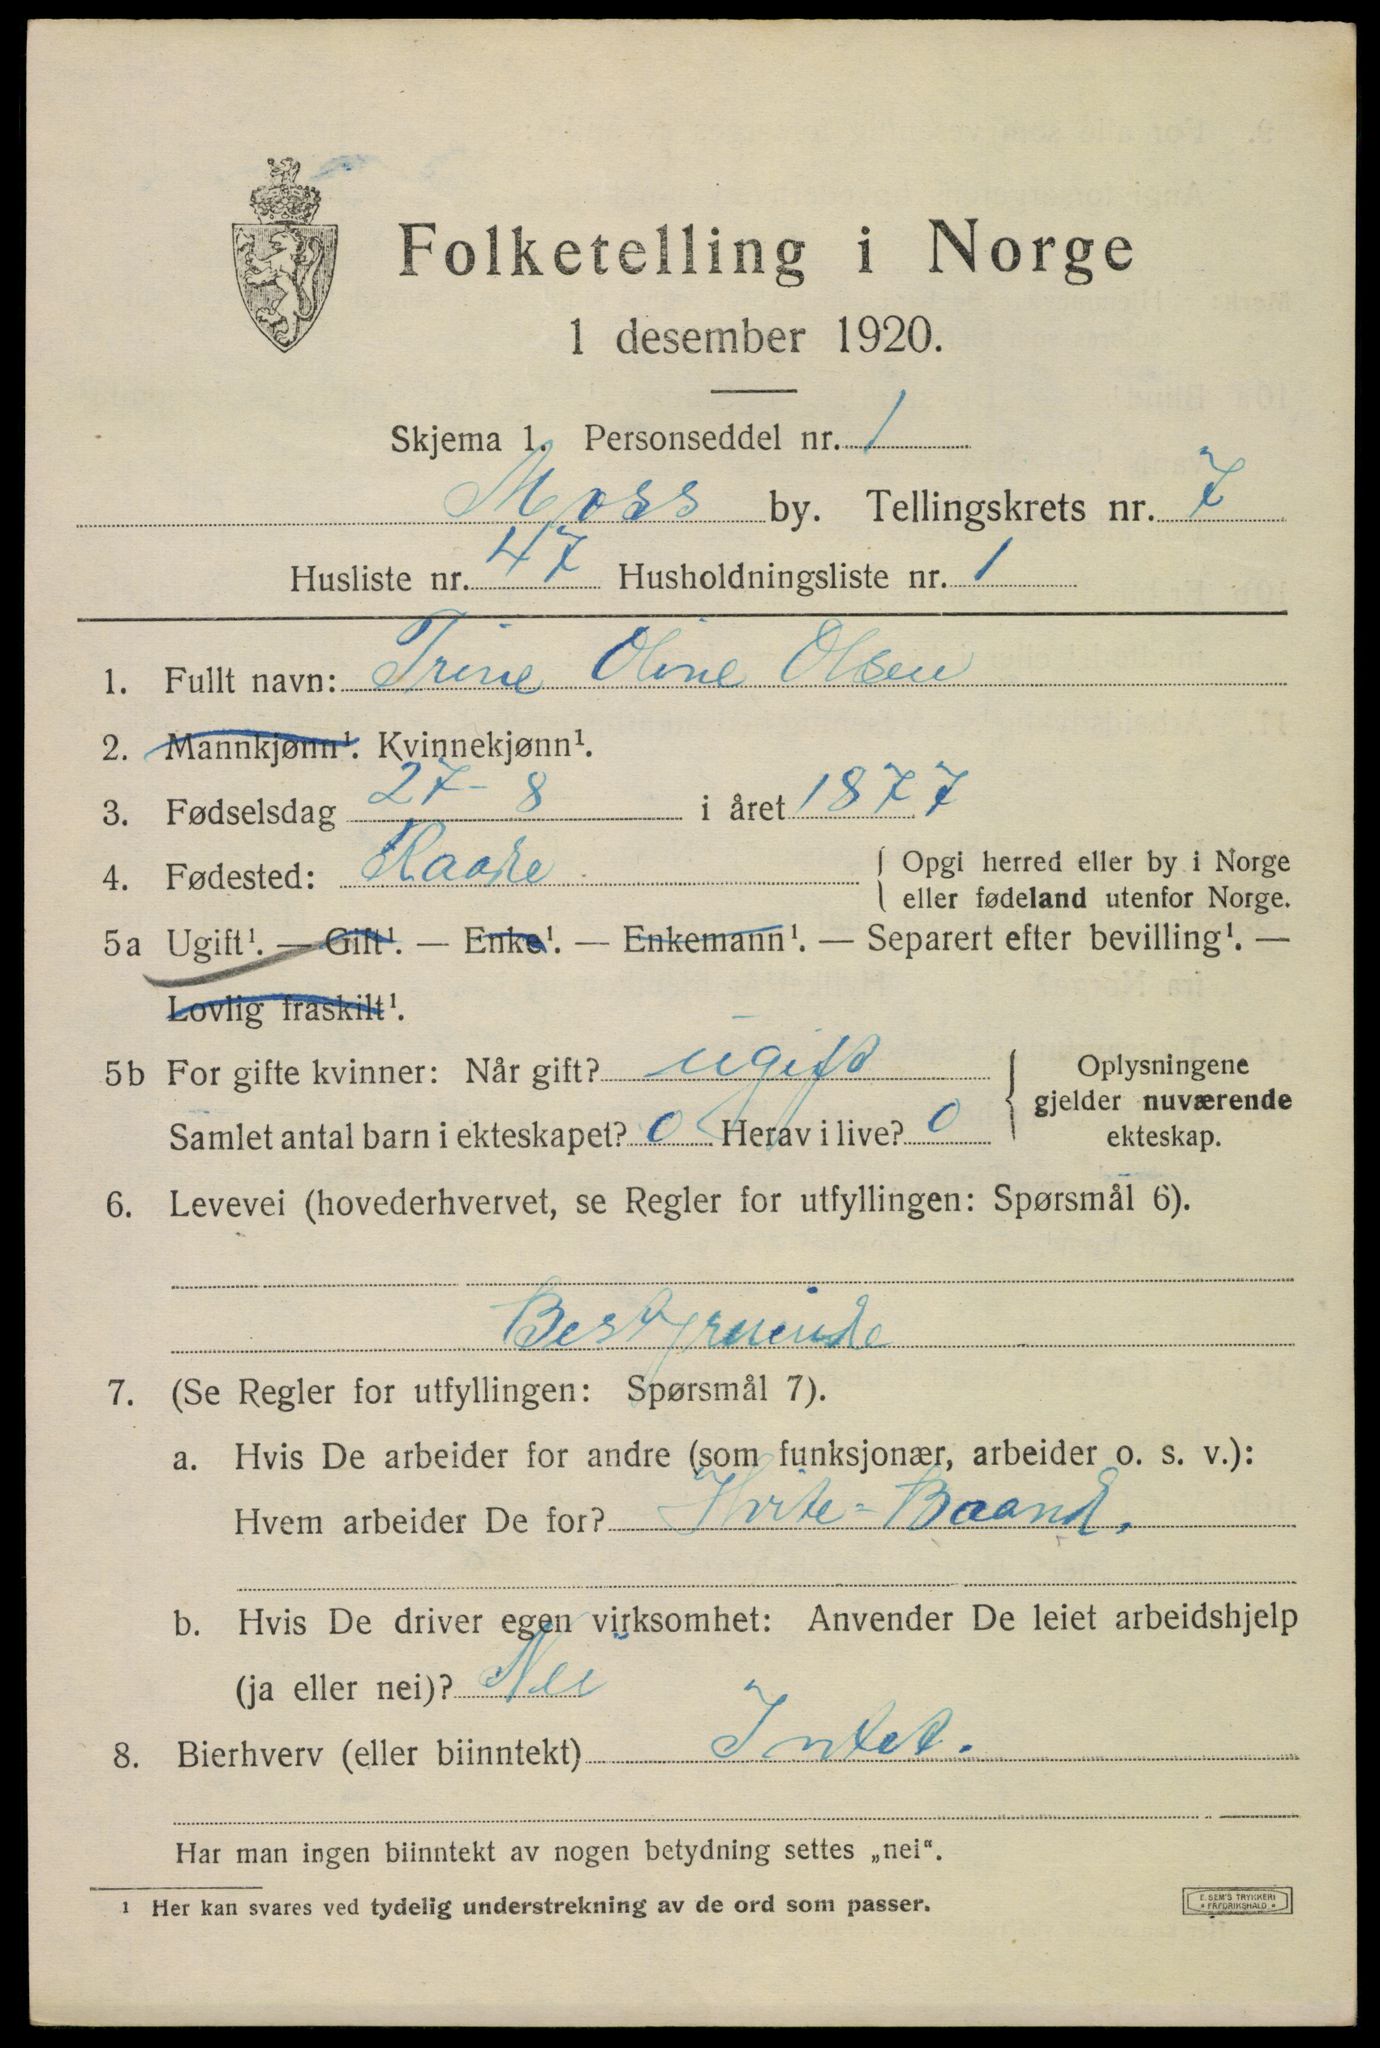 Folketelling i Norge
1 desember 1920.
Skjema 1. Personseddel nr. 1
Moss by. Tellingskrets nr. 7
Husliste nr. 47 Husholdningsliste nr. 1
1. Fullt navn: Trine Oline Olsen
2. Mannkjønn¹. Kvinnekjønn¹.
3. Fødselsdag 27-8 i året 1877
4. Fødested: Raade { Opgi herred eller by i Norge
eller fødeland utenfor Norge.
5a Ugift¹. — Gift¹. — Enke¹. — Enkemann¹. — Separert efter bevilling¹. —
Lovlig fraskilt¹.
5b For gifte kvinner: Når gift? ugift { Oplysningene
gjelder nuværende
Samlet antal barn i ekteskapet? 0 Herav i live? 0 ekteskap.
6. Levevei (hovederhvervet, se Regler for utfyllingen: Spørsmål 6).
Bestyrerinde
7. (Se Regler for utfyllingen: Spørsmål 7).
a. Hvis De arbeider for andre (som funksjonær, arbeider o. s. v.):
Hvem arbeider De for? Hvite-Baand.
b. Hvis De driver egen virksomhet: Anvender De leiet arbeidshjelp
(ja eller nei)? Nei
8. Bierhverv (eller biinntekt) Intet.
Har man ingen biinntekt av nogen betydning settes „nei“.
¹ Her kan svares ved tydelig understrekning av de ord som passer.
E. SEM'S TRYKKERI
* FREDRIKSHALD *